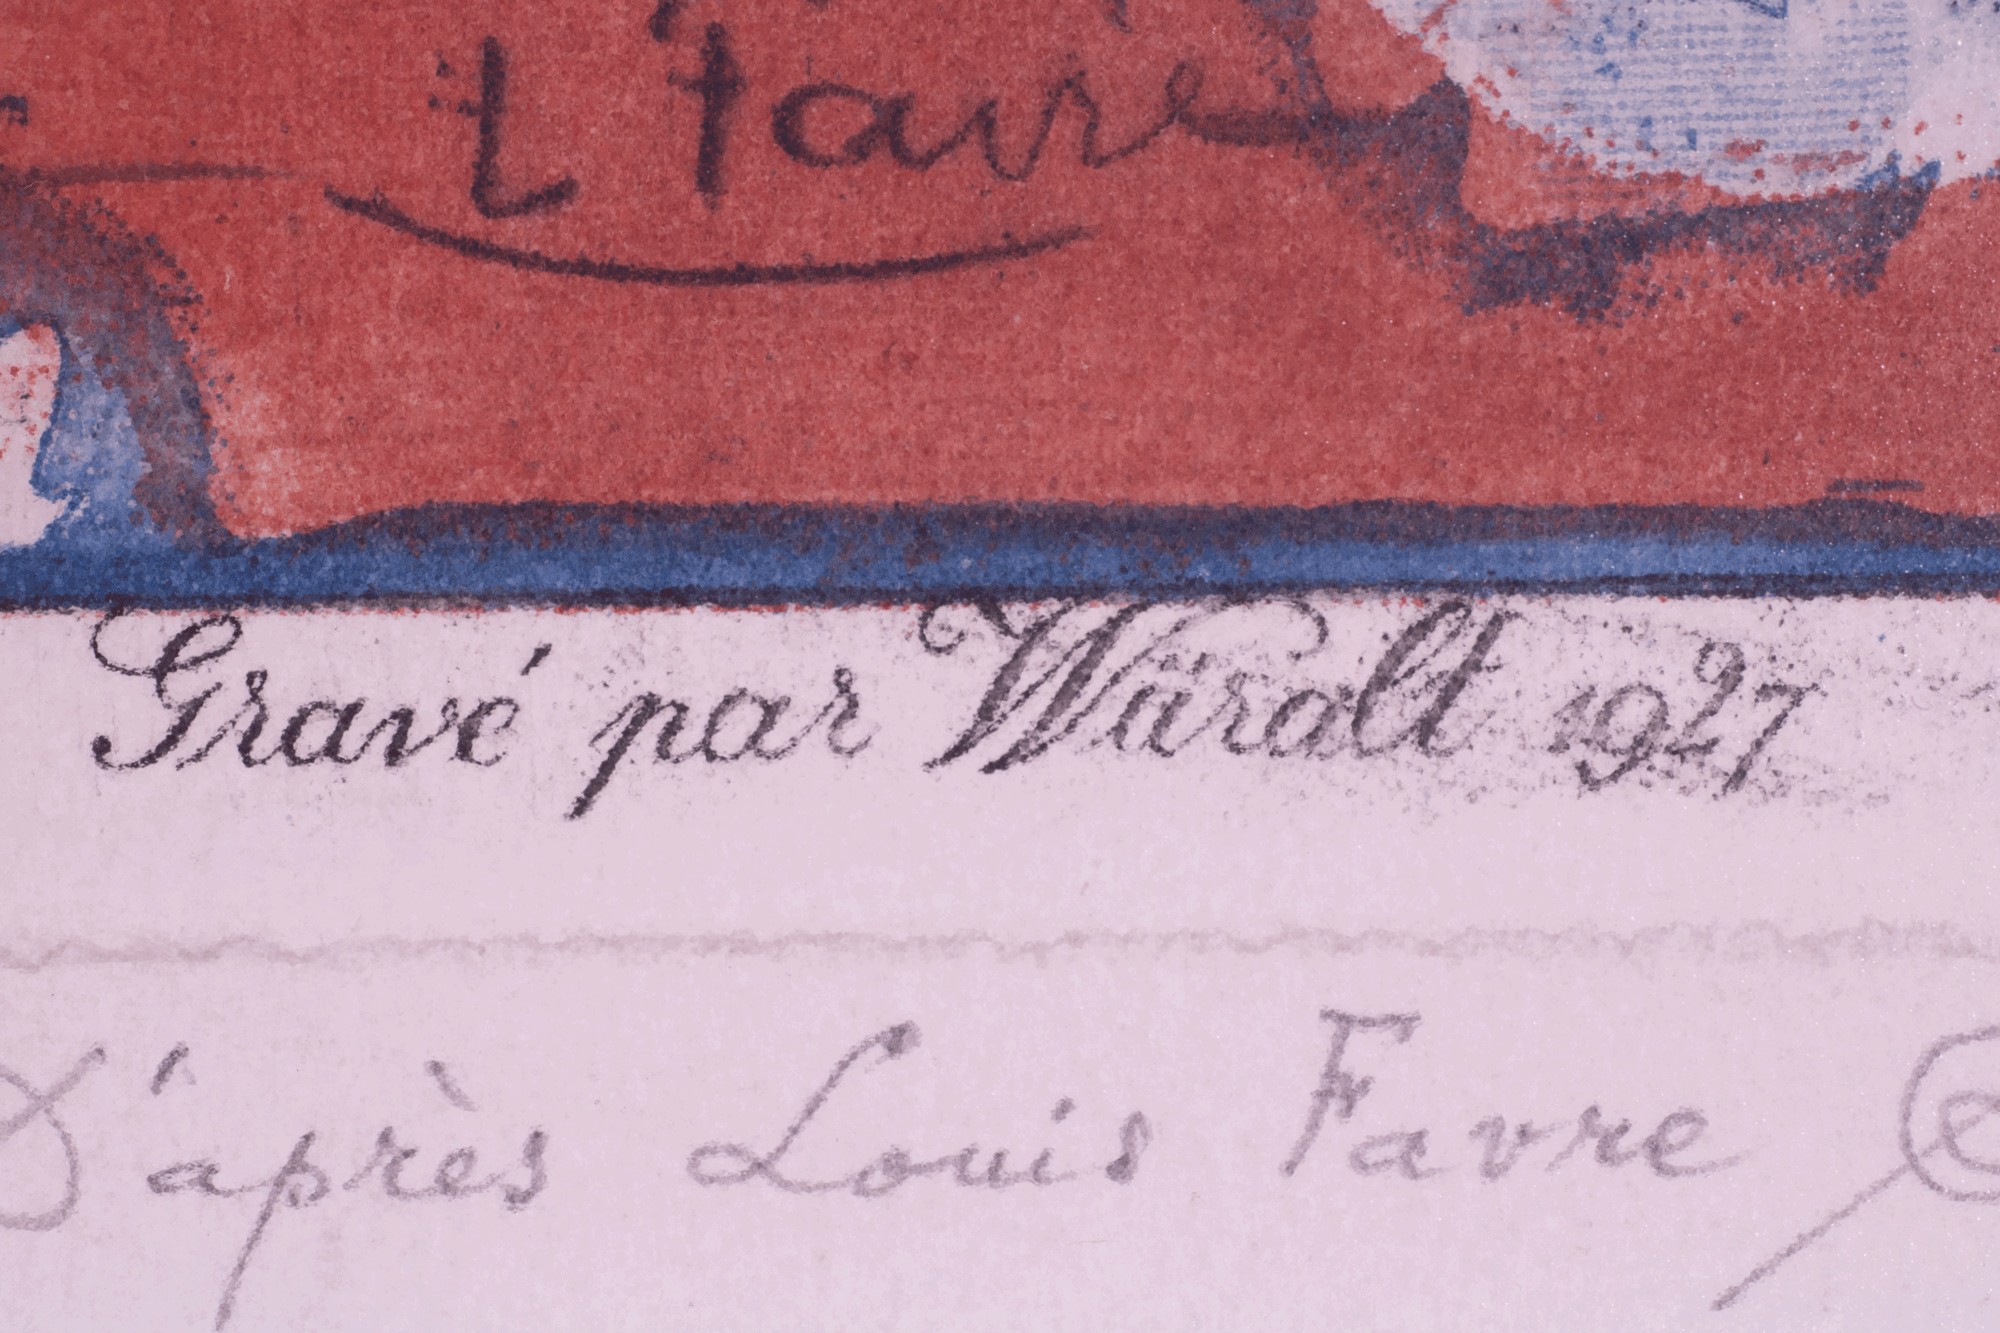 L Favre
Gravé par Wiiralt 1927
D'après Louis Favre